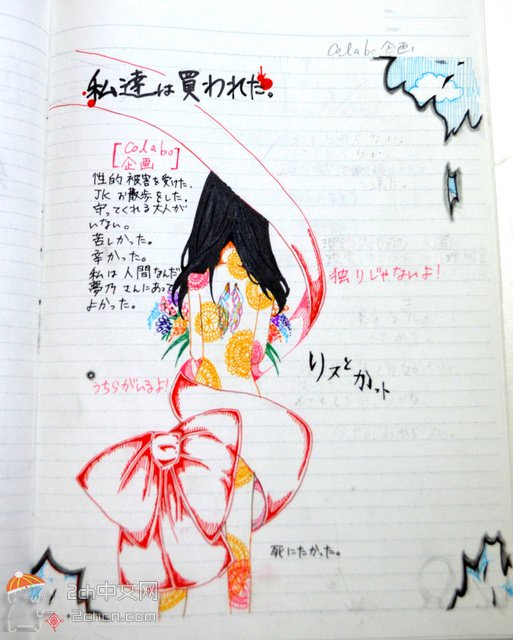 Colabo 企画
私達は買われた。
[Colabo
企画]
性的被害を受けた。
JKお散歩をした。
守ってくれる大人が
いない。
苦しかった。
辛かった。
私は人間なんだ
夢乃さんにあって
よかった。
独りじゃないよ!
リスとカット
うちらがいるよ!
死にたかった。
2ch中文网
2chcn.com